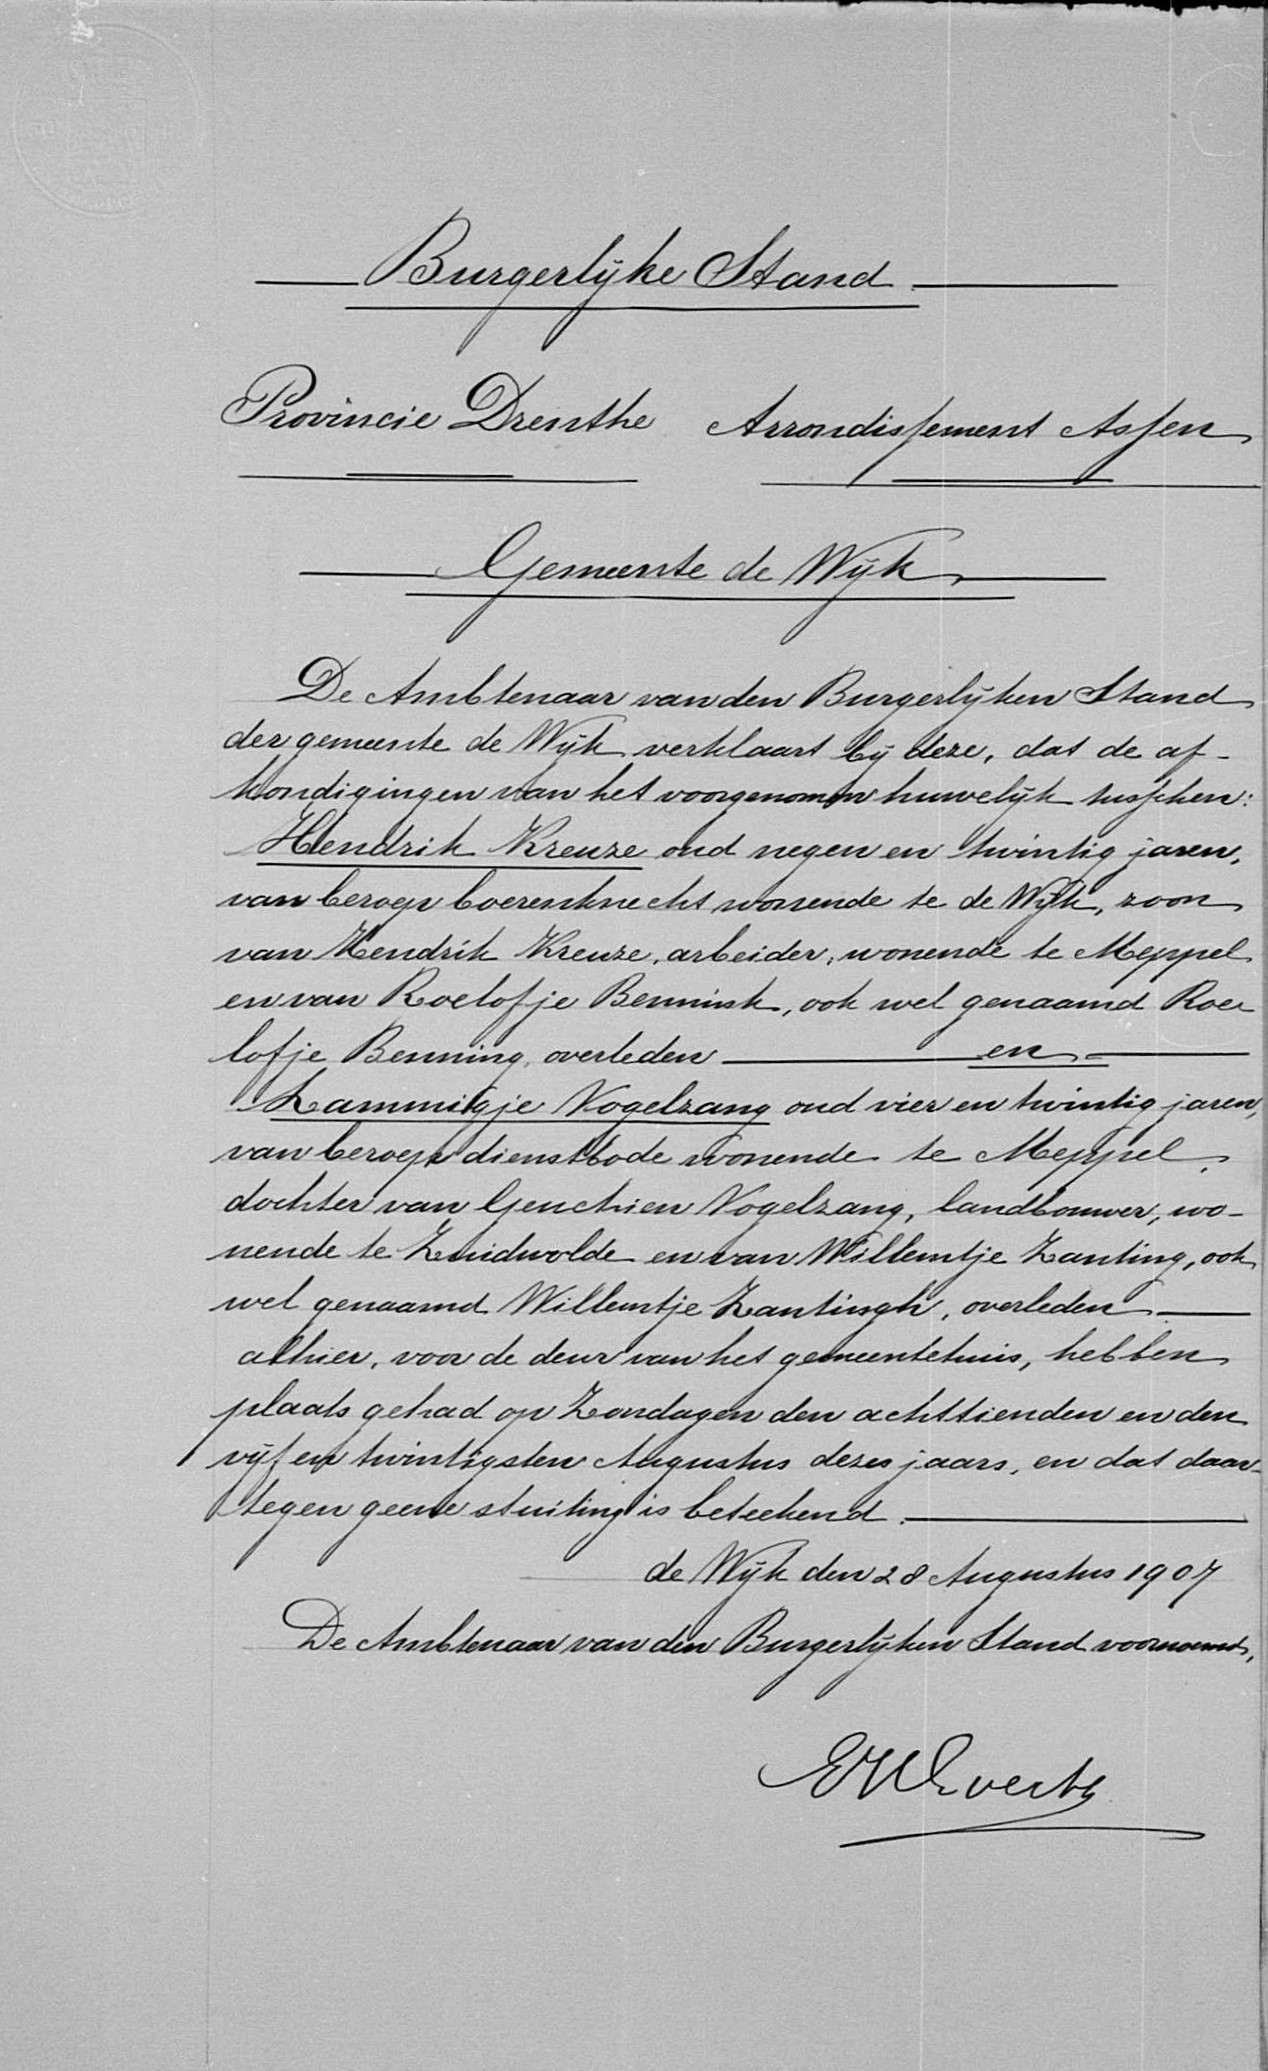 Burgerlijke Stand
Provincie Drenthe Arrondissement Assen
Gemeente de Wijk
De Ambtenaar van den Burgerlijken Stand
der gemeente de Wijk verklaart bij deze, dat de af-
kondigingen van het voorgenomen huwelijk tusschen:
Hendrik Kreuze oud negen en twintig jaren,
van beroep boerenknecht wonende te de Wijk, zoon
van Hendrik Kreuze, arbeider, wonende te Meppel
en van Roelofje Bennink, ook wel genaamd Roe-
lofje Benning, overleden en
Lammigje Vogelzang oud vier en twintig jaren,
van beroep dienstbode wonende te Meppel,
dochter van Geuchien Vogelzang, landbouwer, wo-
nende te Zuidwolde en van Willemtje Zanting, ook
wel genaamd Willemtje Zantingh, overleden
alhier, voor de deur van het gemeentehuis, hebben
plaats gehad op Zondagen den achttienden en den
vijf en twintigsten Augustus dezes jaars, en dat daar-
tegen geene stuiting is beteekend.
de Wijk den 28 Augustus 1907
De Ambtenaar van den Burgerlijken Stand voornoemd,